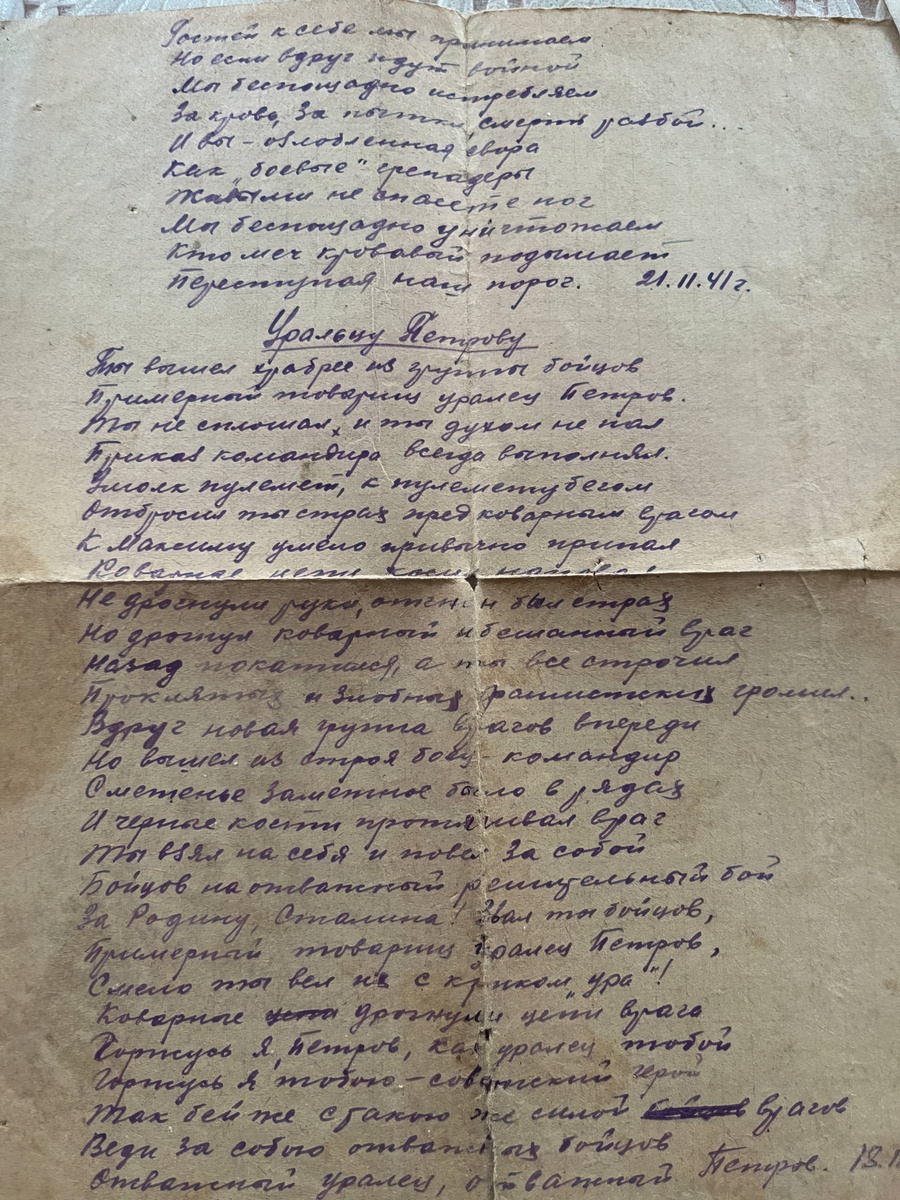 Гостей к себе мы принимаем
Но если вдруг идут войной
Мы беспощадно истребляем
За кровь, За пытки, смерть разбой...
И вы - озлобленная свора
Как „боевые" гренадеры
Живыми не спасете ног
Мы беспощадно уничтожаем
Кто меч кровавый подымает
Переступая наш порог. 21.11.41г.
Уральцу Петрову
Ты вышел храбрее из группы бойцов
Примерный товарищ уралец Петров.
Ты не сплошал, и ты духом не пал
Приказ командира всегда выполнял.
Умолк пулемет, к пулемету бегом
Отбросил ты страх пред коварным врагом
К Максиму умело привычно припал
Коварные цепи косил
Не дрогнули руки, отчн н был страх
Но дрогнул коварный и бешанный враг
Назад покатился, а ты все строчил
Проклятых и злобных фашистских громил..
Вдруг новая группа врагов впереди
Но вышел из строя боец - командир
Сметенье заметное было в рядах
И черные кости протягивал враг
Ты взял на себя и повел за собой
Бойцов на отважный решительный бой
За Родину, Сталина! Звал ты бойцов,
Примерный товарищ уралец Петров,
Смело ты вел их с криком „ура"!
Коварные дрогнули цепи врага
Горжусь я, Петров, как уралец тобой
Горжусь я тобою - советский герой
Так бей же с такою же силой врагов
Веди за собою отважных бойцов
Отважный уралец, отважный Петров.